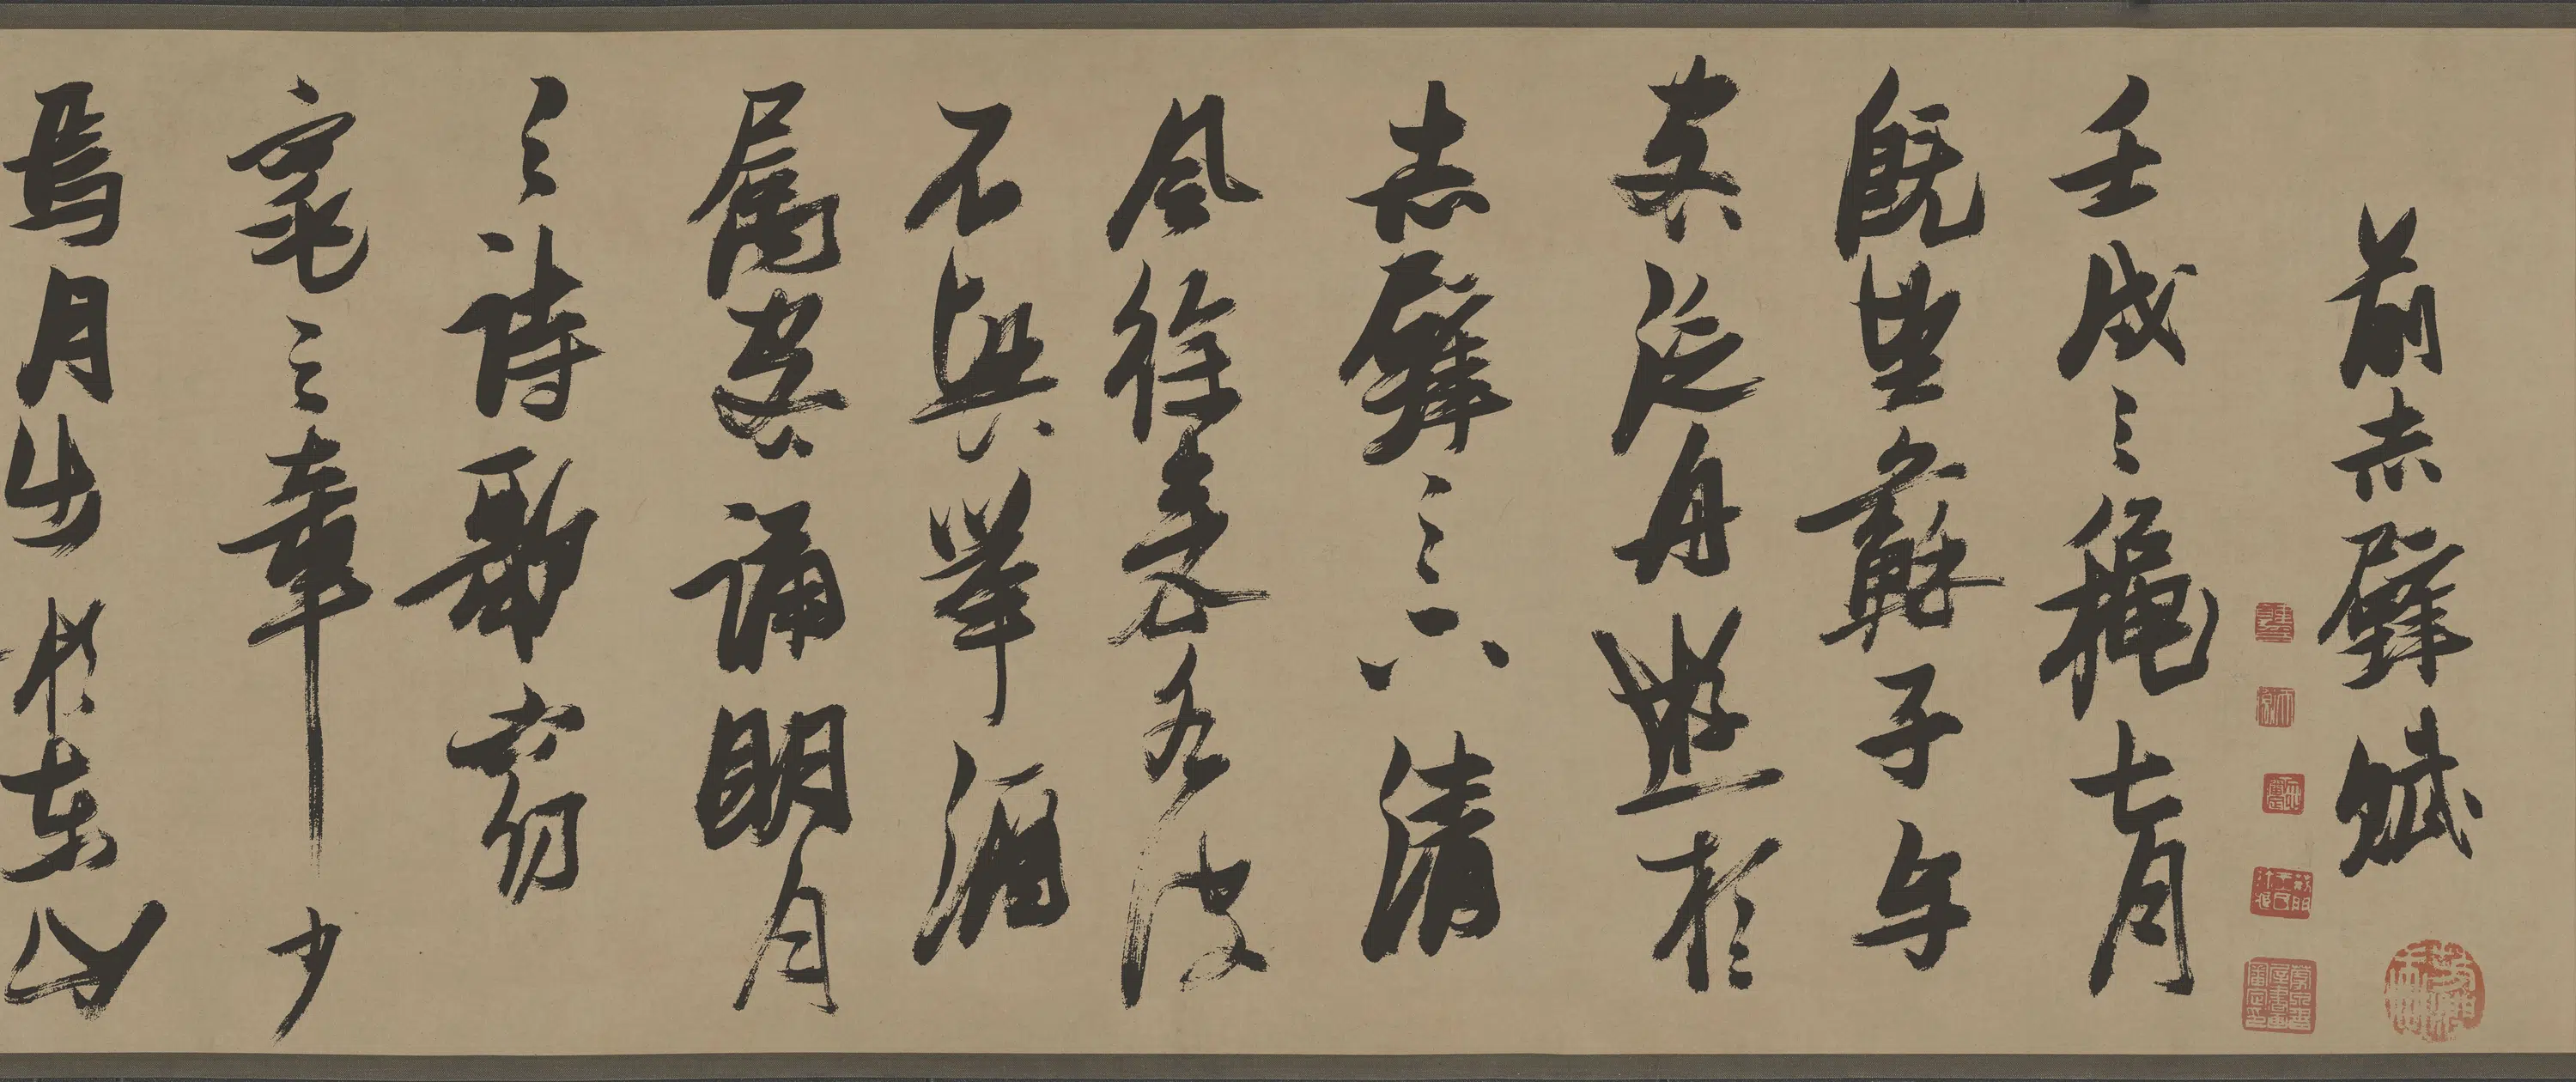 前赤壁賦
壬戌之穐七月
既望蘇子与
客泛舟遊於
赤壁之下清
風徐来水波
不興舉酒
属客誦明月
之詩歌窈
窕之章少
焉月出於東山